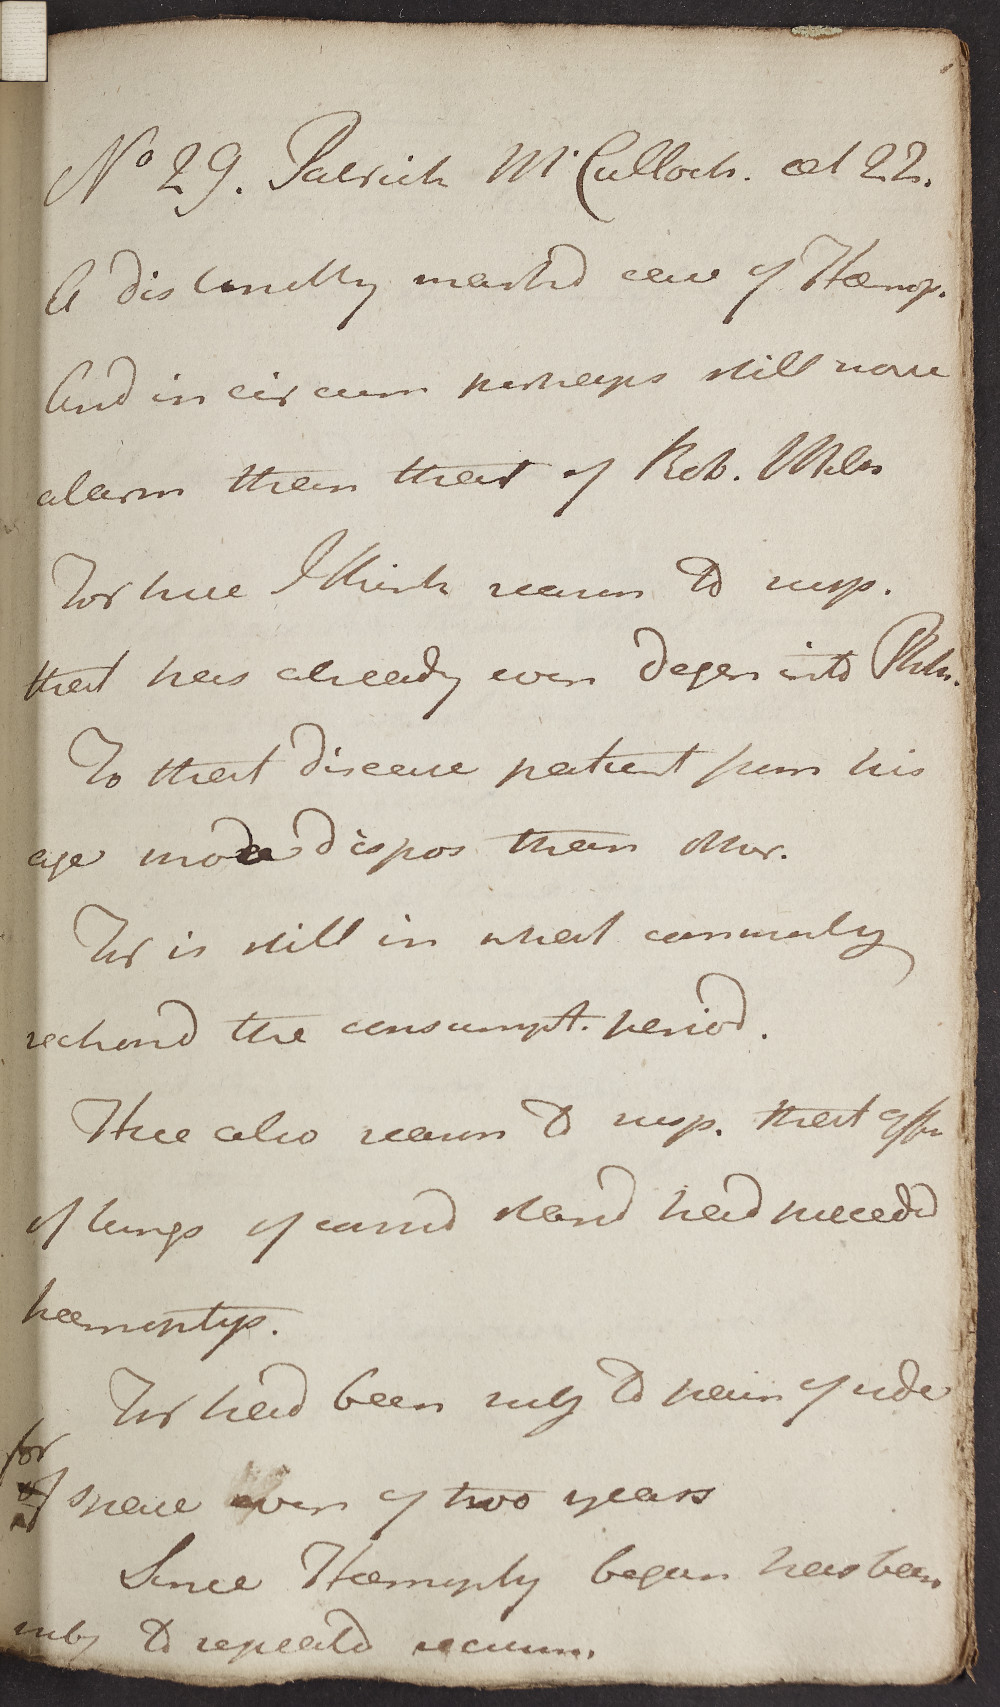 No 29. Patrick McCulloch. æt 22.
A distinctly markd case of Hæmop.
And in circum perhaps still more
alarm than that of Rob. Miln
For here I think reason to susp.
that has already even degen into Phth.
To that disease patient from his
age more dispos than other.
For is still in what commonly
reckond the consumpt. period.
Here also reason to susp. that affn
of lungs of some stand had preceded
hæmoptys.
For had been subj to pain of side
for
space even of two years
Since Hæmopty began has been
subj to repeatd recurrn.